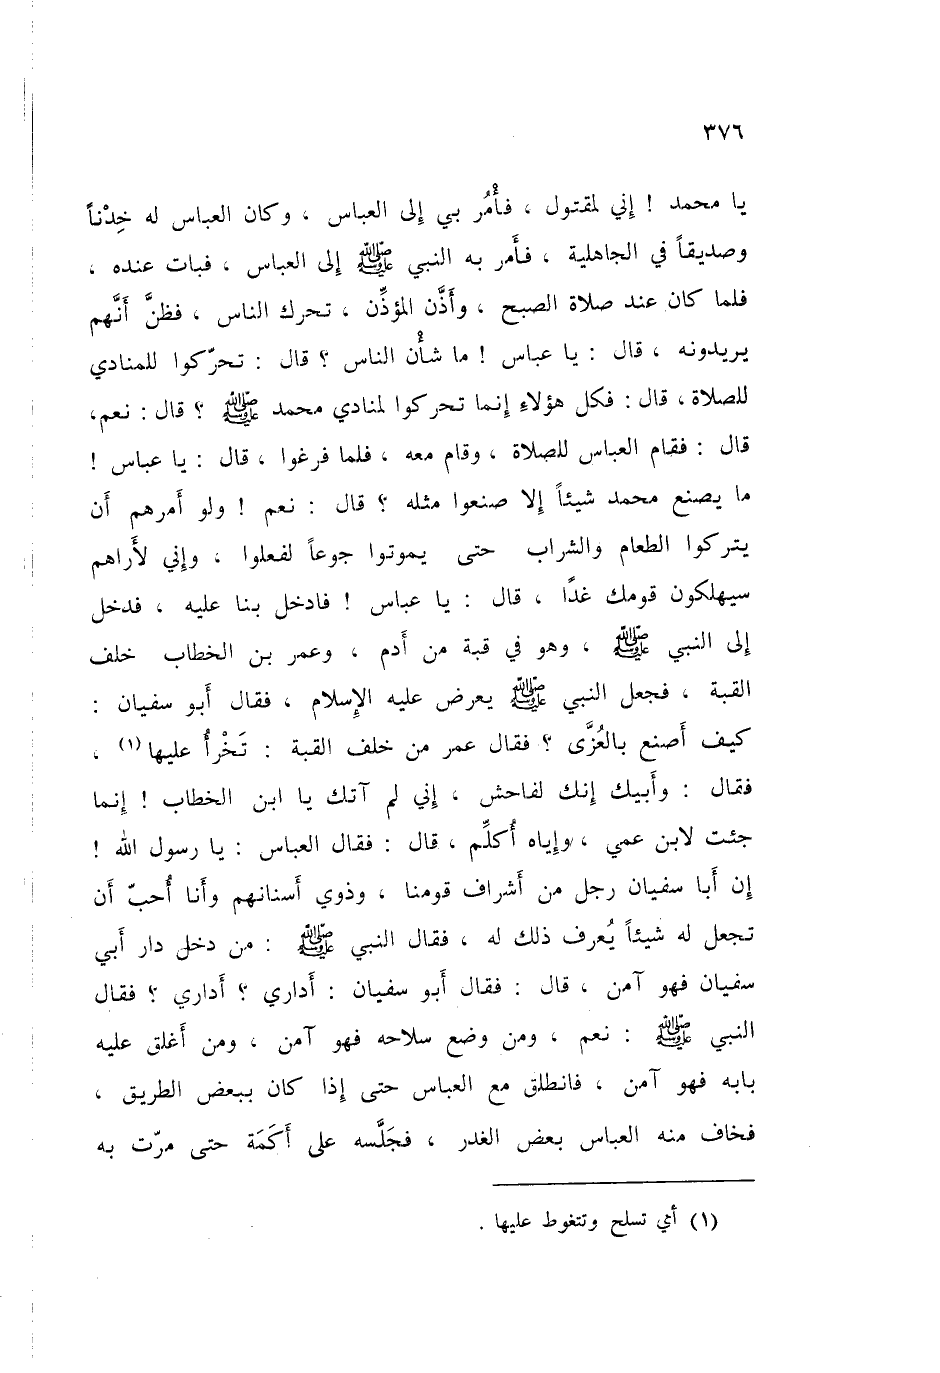 ٣٧٦
يا محمد ! إني لمقتول ، فأْمُر بي إلى العباس ، وكان العباس له خِدْناً
وصديقاً في الجاهلية ، فأَمر به النبي ﷺ إلى العباس ، فبات عنده ،
فلما كان عند صلاة الصبح ، وأَذَّن المؤذِّن ، تحرك الناس ، فظنَّ أَنَّهم
يريدونه ، قال : يا عباس ! ما شأْن الناس ؟ قال : تحرّكوا للمنادي
للصلاة ، قال : فكل هؤلاءِ إنما تحركوا لمنادي محمد ﷺ ؟ قال : نعم،
قال : فقام العباس للصلاة ، وقام معه ، فلما فرغوا ، قال : يا عباس !
ما يصنع محمد شيئاً إلا صنعوا مثله ؟ قال : نعم ! ولو أَمرهم أَن
يتركوا الطعام والشراب حتى يموتوا جوعاً لفعلوا ، وإني لأَراهم
سيهلكون قومك غدًا ، قال : يا عباس ! فادخل بنا عليه ، فدخل
إلى النبي ﷺ ، وهو في قبة من أَدم ، وعمر بن الخطاب خلف
القبة ، فجعل النبي ﷺ يعرض عليه الإِسلام ، فقال أَبو سفيان :
كيف أَصنع بالعُزَّى ؟ فقال عمر من خلف القبة : تَخْرأُ عليها(١) ،
فقال : وأَبيك إنك لفاحش ، إني لم آتك يا ابن الخطاب ! إنما
جئت لابن عمي ، وإياه أُكلِّم ، قال : فقال العباس : يا رسول الله !
إن أَبا سفيان رجل من أَشراف قومنا ، وذوي أَسنانهم وأَنا أُحبّ أَن
تجعل له شيئاً يُعرف ذلك له ، فقال النبي ﷺ : من دخل دار أَبي
سفيان فهو آمن ، قال : فقال أَبو سفيان : أَداري ؟ أَداري ؟ فقال
النبي ﷺ : نعم ، ومن وضع سلاحه فهو آمن ، ومن أَغلق عليه
بابه فهو آمن ، فانطلق مع العباس حتى إذا كان ببعض الطريق ،
فخاف منه العباس بعض الغدر ، فجَلَّسه على أَكَمَة حتى مرّت به
(١) أي تسلح وتتغوط عليها .